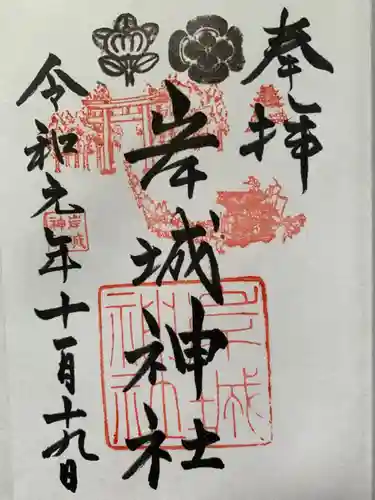 奉拝
岸城神社
令和元年十一月十九日
岸城神社
岸城神